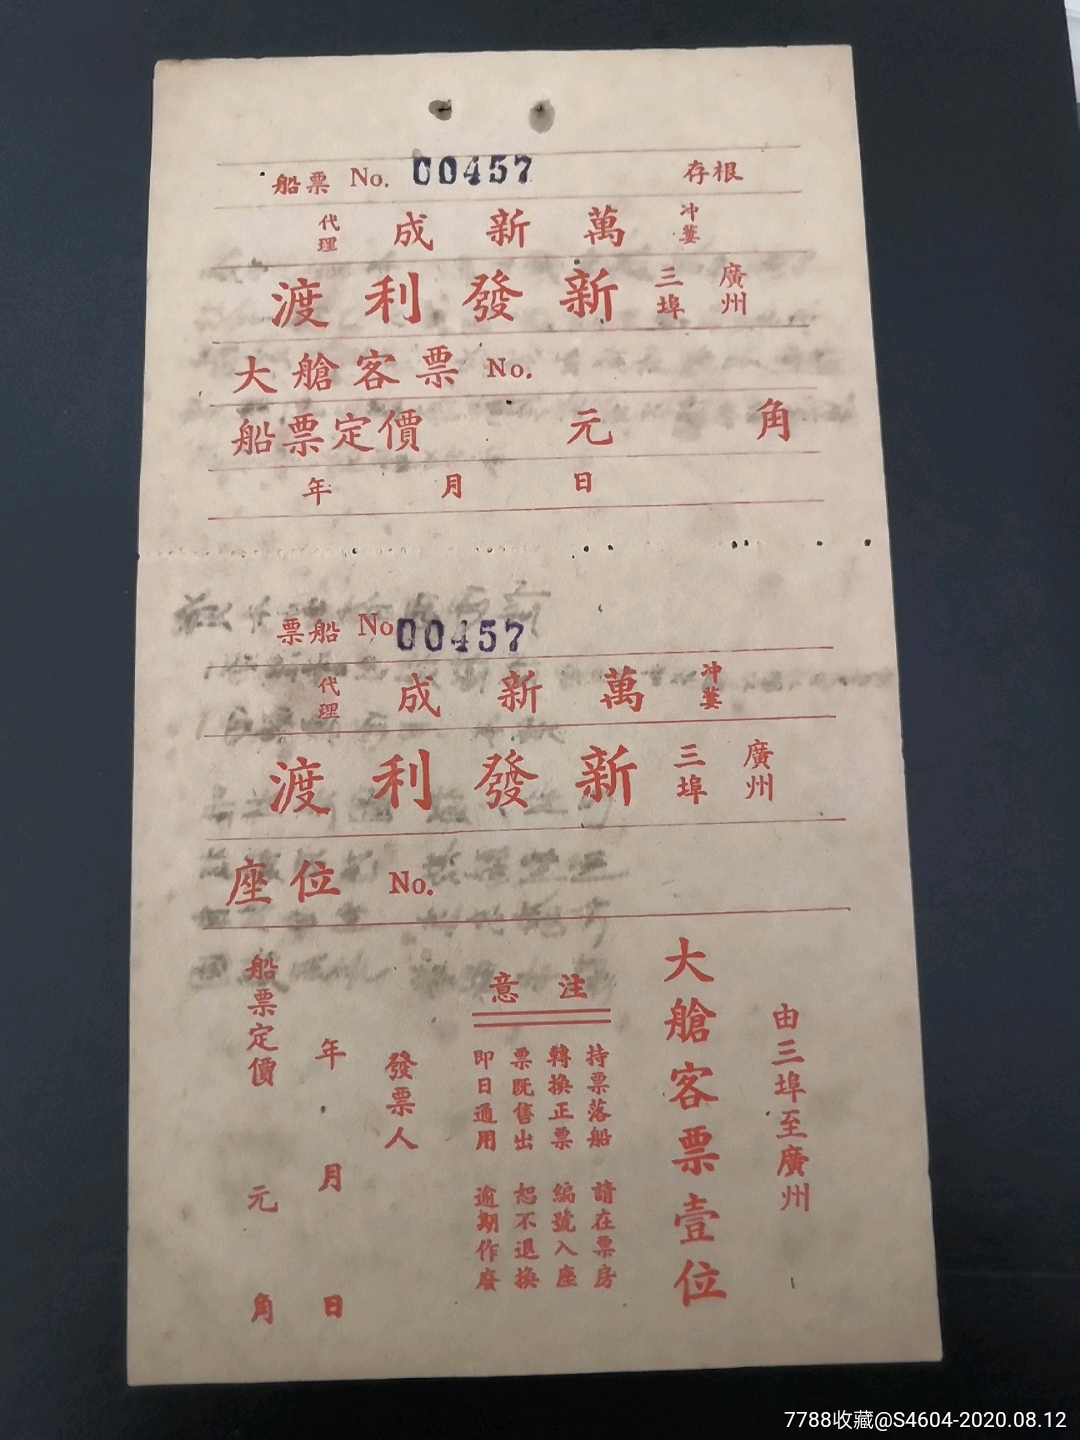 船票 No. 00457 存根
冲蒌 萬新成 代理
廣州 三埠 新發利渡
大艙客票 No.
船票定價 元 角
年 月 日
船票 No 00457
冲蒌 萬新成 代理
廣州 三埠 新發利渡
座位 No.
由三埠至廣州
大艙客票壹位
注意
持票落船 請在票房
轉換正票 編號入座
票既售出 恕不退換
即日通用 逾期作廢
發票人
年 月 日
船票定價 元 角
7788收藏@S4604-2020.08.12